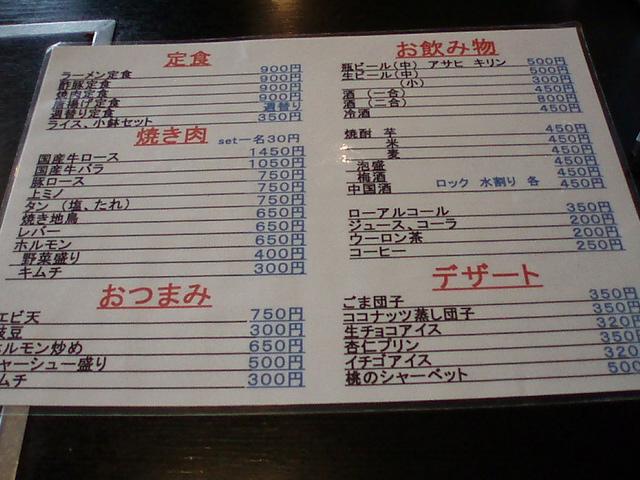 定食
ラーメン定食 900円
酢豚定食 900円
焼肉定食 900円
唐揚げ定食 900円
週替り定食 週替り
ライス、小鉢セット 350円
焼き肉 set一名30円
国産牛ロース 1450円
国産牛バラ 1050円
豚ロース 750円
上ミノ 750円
タン（塩、たれ） 750円
焼き地鳥 650円
レバー 650円
ホルモン 650円
野菜盛り 400円
キムチ 300円
おつまみ
エビ天 750円
枝豆 300円
ホルモン炒め 650円
チャーシュー盛り 500円
キムチ 300円
お飲み物
瓶ビール（中） アサヒ キリン 500円
生ビール（中） 500円
（小） 300円
酒（一合） 450円
酒（二合） 800円
冷酒 450円
焼酎 芋 450円
米 450円
麦 450円
泡盛 450円
梅酒 450円
中国酒 ロック 水割り 各 450円
ローアルコール 350円
ジュース、コーラ 200円
ウーロン茶 200円
コーヒー 250円
デザート
ごま団子 350円
ココナッツ蒸し団子 350円
生チョコアイス 320
杏仁プリン 350
イチゴアイス 320
桃のシャーベット 500